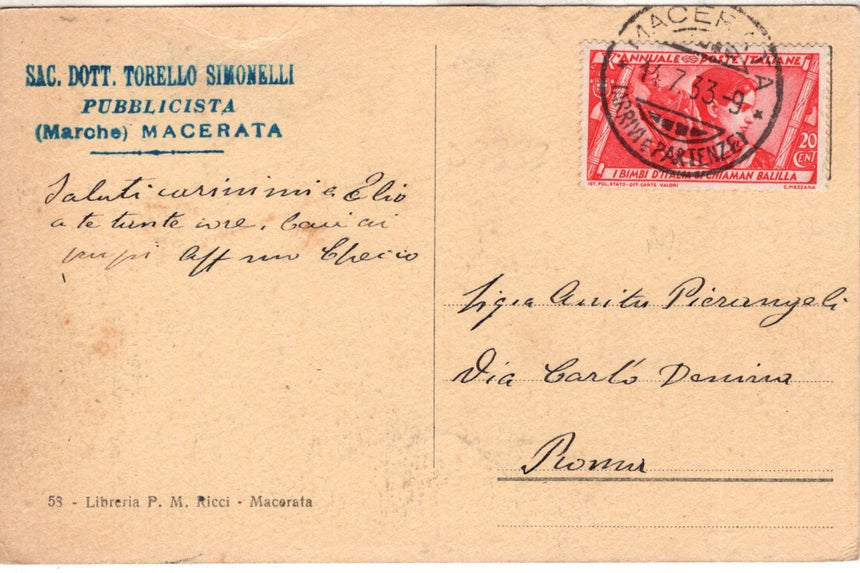 SAC. DOTT. TORELLO SIMONELLI
PUBBLICISTA
(Marche) MACERATA
Saluti carissimi a Elio
a te tante cose. Baci ai
Aff mo
58 - Libreria P. M. Ricci - Macerata
MACERATA
14.7.33-9
ARRIVI E PARTENZE
ANNUALE POSTE ITALIANE
20
CENT
I BIMBI D'ITALIA SI CHIAMAN BALILLA
IST. POL. STATO - OFF. CARTE VALORI
C. MEZZANA
Sig.a Anita Pierangeli
Via Carlo Denina
Roma